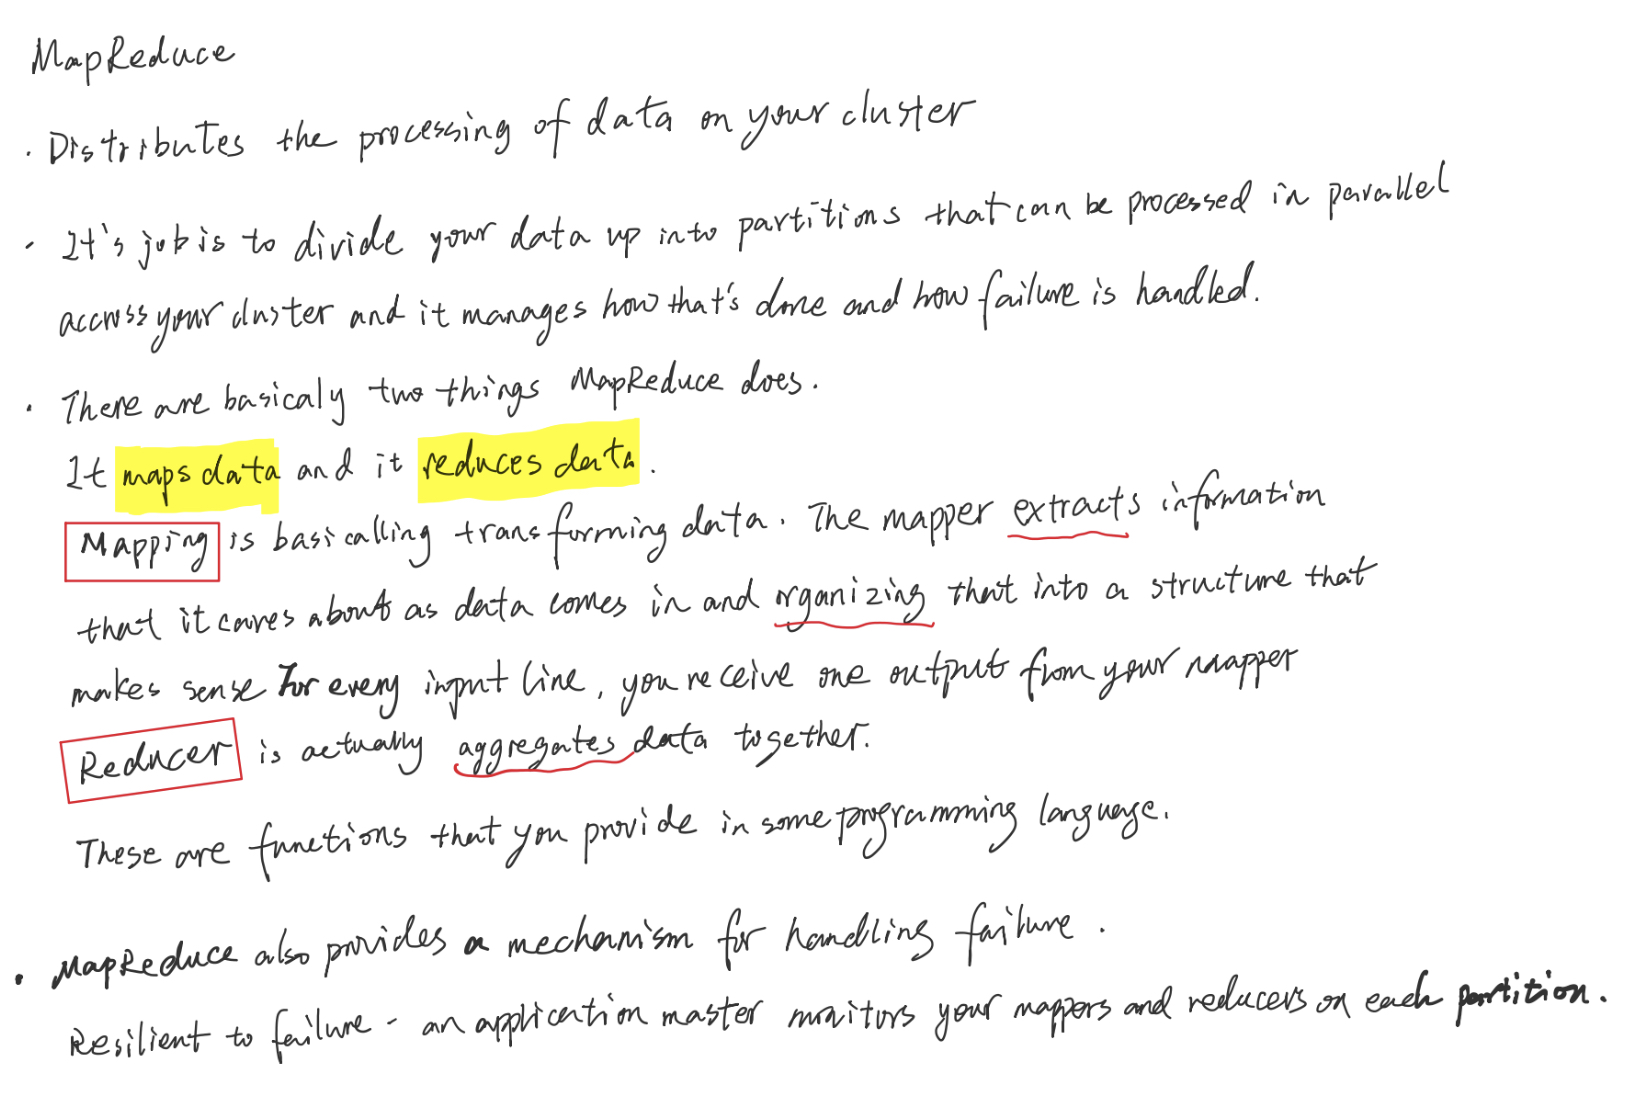 MapReduce
· Distributes the processing of data on your cluster
· It's job is to divide your data up into partitions that can be processed in parallel
accross your cluster and it manages how that's done and how failure is handled.
· There are basicaly two things MapReduce does.
It maps data and it reduces data.
Mapping is basicalling transforming data. The mapper extracts information
that it cares about as data comes in and organizing that into a structure that
makes sense For every input line, you receive one output from your mapper
Reducer is actually aggregates data together.
These are functions that you provide in some programming language.
· MapReduce also provides a mechanism for handling failure.
Resilient to failure - an application master monitors your mappers and reducers on each partition.